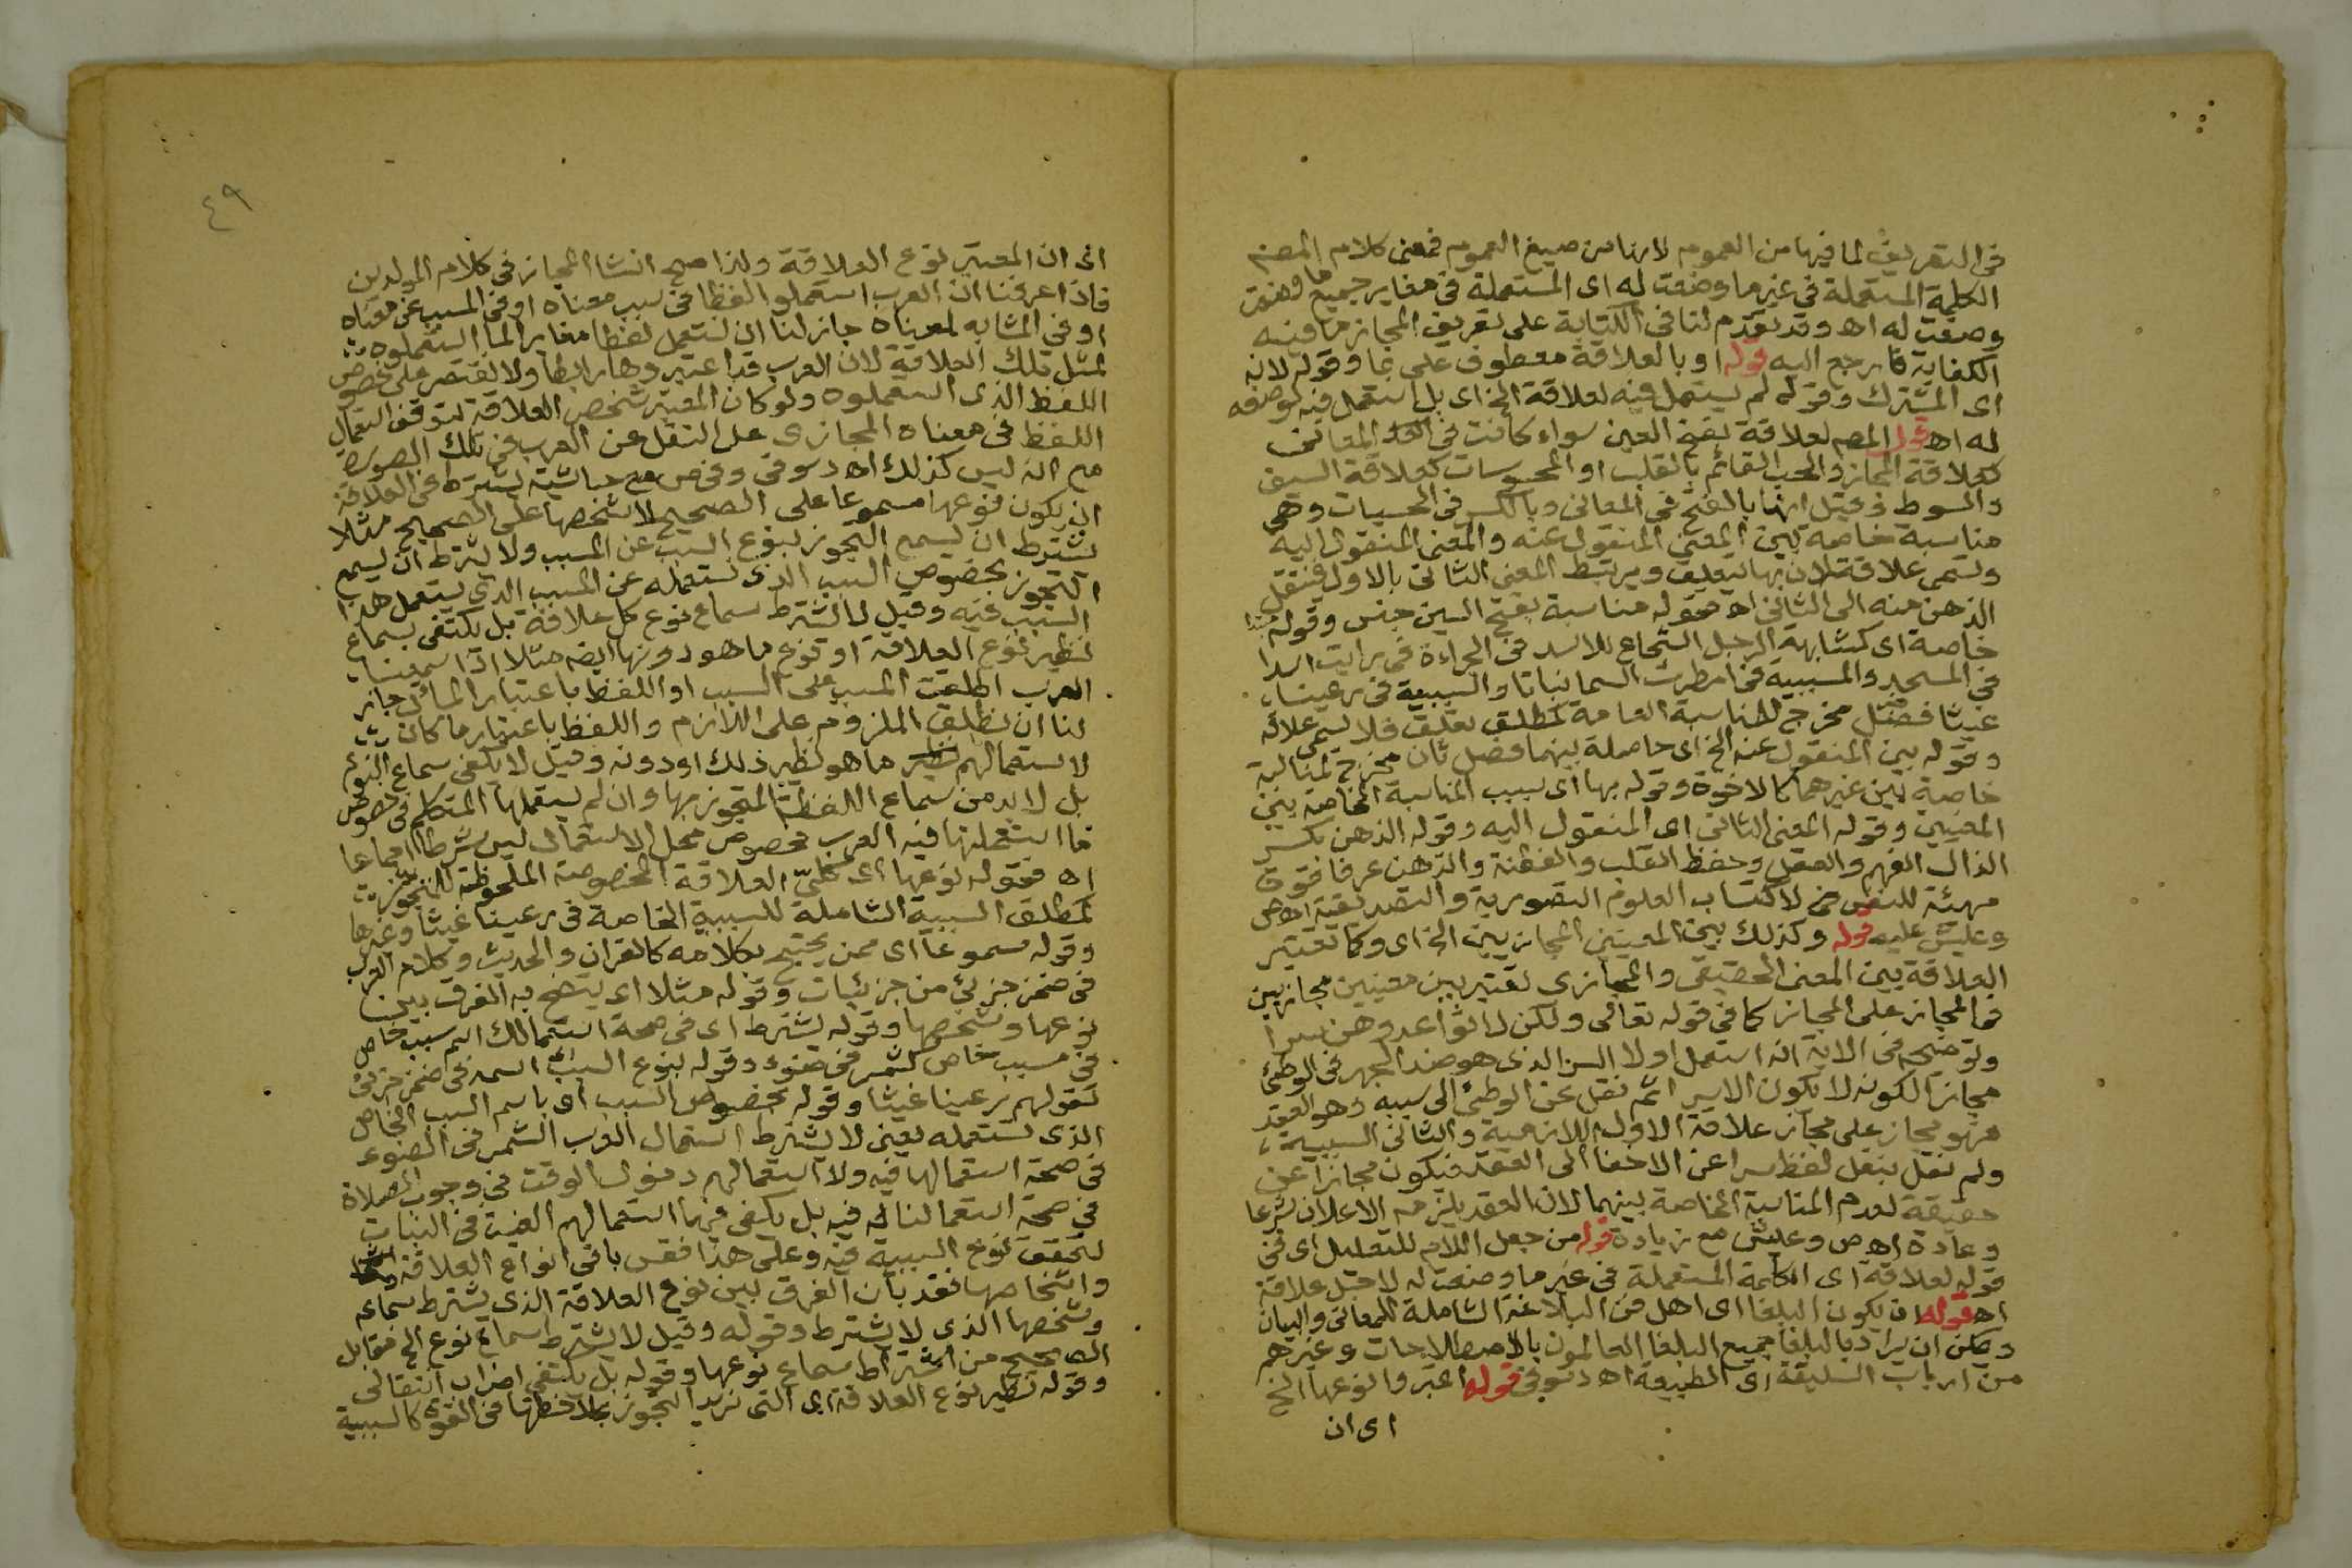 في التعريف لما فيها من العموم لانها من صيغ العموم فمعنى كلام المصنم
الكلمة المستعملة في غير ما وضعت له اى المستعملة في مغاير جميع ما وضعت
وضعت له اه وقد تقدم لنا في الكتابة على تعريف المجاز ما فيه
الكفاية فارجع اليه قوله او بالعلاقة معطوف على بما وقوله لانه
اى المشترك وقوله لم يستعمل فيه لعلاقة الخ اى بل استعمل فيه لوضعه
له اه قول المصم لعلاقة بفتح العين سواء كانت في المعانى
كعلاقة المجاز والحب القائم بالقلب او المحسوسات كعلاقة السيف
والسوط وقيل انها بالفتح في المعانى وبالكسر في الحسيات وهى
مناسبة خاصة بين المعنى المنقول عنه والمعنى المنقول اليه
وتسمى علاقة لان بها يتعلق ويرتبط المعنى الثانى بالاول فينتقل
الذهن منه الى الثانى اه فقوله مناسبة بفتح السين جنس وقوله
خاصة اى كمشابهة الرجل الشجاع للاسد في الجراءة في رايت اسدا
في المسجد والمسببية في امطرت السما نباتا والسببية في رعينا
غيثا فصل مخرج للمناسبة العامة كمطلق تعلق فلا يسمى علاقة
وقوله بين المنقول عنه الخ اى حاصلة بينهما فصل ثان مخرج لمناسبة
خاصة بين غيرهما كالاخوة وقوله بها اى بسبب المناسبة الخاصة بين
المعنيين وقوله المعنى الثانى اى المنقول اليه وقوله الذهن بكسر
الذال الفهم والعقل وحفظ القلب والفطنة والذهن عرفا قوة
مهيئة للنفس لاكتساب العلوم التصورية والتصديقية اه ص
وعليش عليه قوله وكذلك بين المعنيين المجازيين الخ اى وكما تعتبر
العلاقة بين المعنى الحقيقى والمجازى تعتبر بين معنيين مجازيين
فالمجاز على المجاز كما في قوله تعالى ولكن لا تواعدوهن سرا
وتوضيحه في الاية انه استعمل اولا السر الذى هو ضد الجهر في الوطئ
مجازا لكونه لا يكون الا سرا ثم نقل عن الوطئ الى سببه وهو العقد
فهو مجاز على مجاز علاقة الاول اللازمية والثانى السببية
ولم نقل بنقل لفظ سرا عن الاخفا الى العقد فيكون مجازا عن
حقيقة لعدم المناسبة الخاصة بينهما لان العقد يلزمه الاعلان شرعا
وعادة اه ص وعليش مع زيادة قوله من جعل اللام للتعليل اى في
قوله لعلاقة اى الكلمة المستعملة في غير ما وضعت له لاجل علاقة
اه قوله ان يكون البلغا اى اهل فن البلاغة الشاملة للمعانى والبيان
ويمكن ان يراد بالبلغا جميع البلغا العالمون بالاصطلاحات وغيرهم
من ارباب السليقة اى الطبيعة اه دسوقى قوله اعتبروا نوعها الخ
اى ان
٤٩
اى ان المعتبر نوع العلاقة ولذا صح انشا المجاز في كلام المولدين
فاذا عرفنا ان العرب استعملوا لفظا في سبب معناه او في المسبب عن معناه
او في المشابه لمعناه جاز لنا ان نستعمل لفظا مغايرا لما استعملوه
لمثل تلك العلاقة لان العرب قد اعتبروها رابطا ولا نقتصر على خصوص
اللفظ الذى استعملوه ولو كان المعتبر شخص العلاقة لتوقف استعمال
اللفظ في معناه المجازى على النقل عن العرب في تلك الصورة
مع انه ليس كذلك اه دسوقى وفي ص مع حاشيته يشترط في العلاقة
ان يكون نوعها مسموعا على الصحيح لا شخصها على الصحيح مثلا
يشترط ان يسمع التجوز بنوع السبب عن المسبب ولا يشترط ان يسمع
التجوز بخصوص السبب الذى نستعمله عن المسبب الذى يستعمل هذا
السبب فيه وقيل لا يشترط سماع نوع كل علاقة بل يكتفى بسماع
نظير نوع العلاقة او نوع ما هو دونها ايضه مثلا اذا سمعنا
العرب اطلقت المسبب على السبب او اللفظ باعتبار المال جاز
لنا ان نطلق الملزوم على اللازم واللفظ باعتبار ما كان
لاستعمالهم ما هو نظير ذلك او دونه وقيل لا يكفى سماع النوع
بل لا بد من سماع اللفظة المتجوز بها وان لم يستعملها المتكلم في خصوص
ما استعملتها فيه العرب فخصوص محل الاستعمال ليس شرطا اجماعا
اه فقوله نوعها اى كلى العلاقة المخصوصة الملحوظة للتجوز
كمطلق السببية الشاملة للسببية الخاصة في رعينا غيثا وغيرها
وقوله مسموعا اى ممن يحتج بكلامه كالقران والحديث وكلام العرب
في ضمن جزئ من جزئيات وقوله مثلا اى يتضح به الفرق بين
نوعها وشخصها وقوله يشترط اى في صحة استعمالك اسم سبب خاص
في مسبب خاص كشمس في ضوء وقوله بنوع السبب اسمه في ضمن جزئى
كقولهم رعينا غيثا وقوله بخصوص السبب اى باسم السبب الخاص
الذى نستعمله يعنى لا يشترط استعمال العرب الشمس في الضوء
في صحة استعمالها فيه ولا استعمالهم دخول الوقت في وجوب الصلاة
في صحة استعمالنا له فيه بل يكفى فيهما استعمالهم الغيث في النبات
لتحقق نوع السببية فيه وعلى هذا فقس باقى انواع العلاقة
واشخاصها فقد بان الفرق بين نوع العلاقة الذى يشترط سماعه
وشخصها الذى لا يشترط وقوله وقيل لا يشترط سماع نوع الخ مقابل
الصحيح من اشتراط سماع نوعها وقوله بل يكتفى اضراب انتقالى
وقوله نظير نوع العلاقة اى التى نريد التجوز بملاحظتها في القوة كالسببية